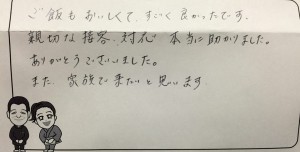 ご飯もおいしくて、すごく良かったです。
親切な接客、対応 本当に助かりました。
ありがとうございました。
また、家族で来たいと思います